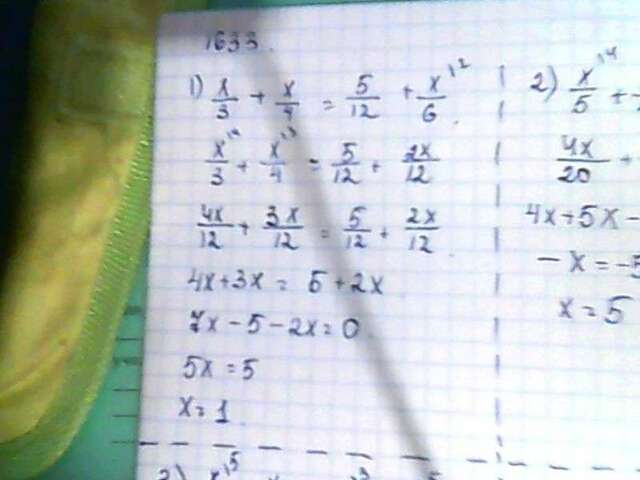 1633.
1) x/3 + x/4 = 5/12 + x\2/6
x\4/3 + x\3/4 = 5/12 + 2x/12
4x/12 + 3x/12 = 5/12 + 2x/12
4x+3x = 5+2x
7x-5-2x=0
5x=5
x=1
2) x\4/5 +
4x/20 +
4x+5x-
-x=-5
x=5